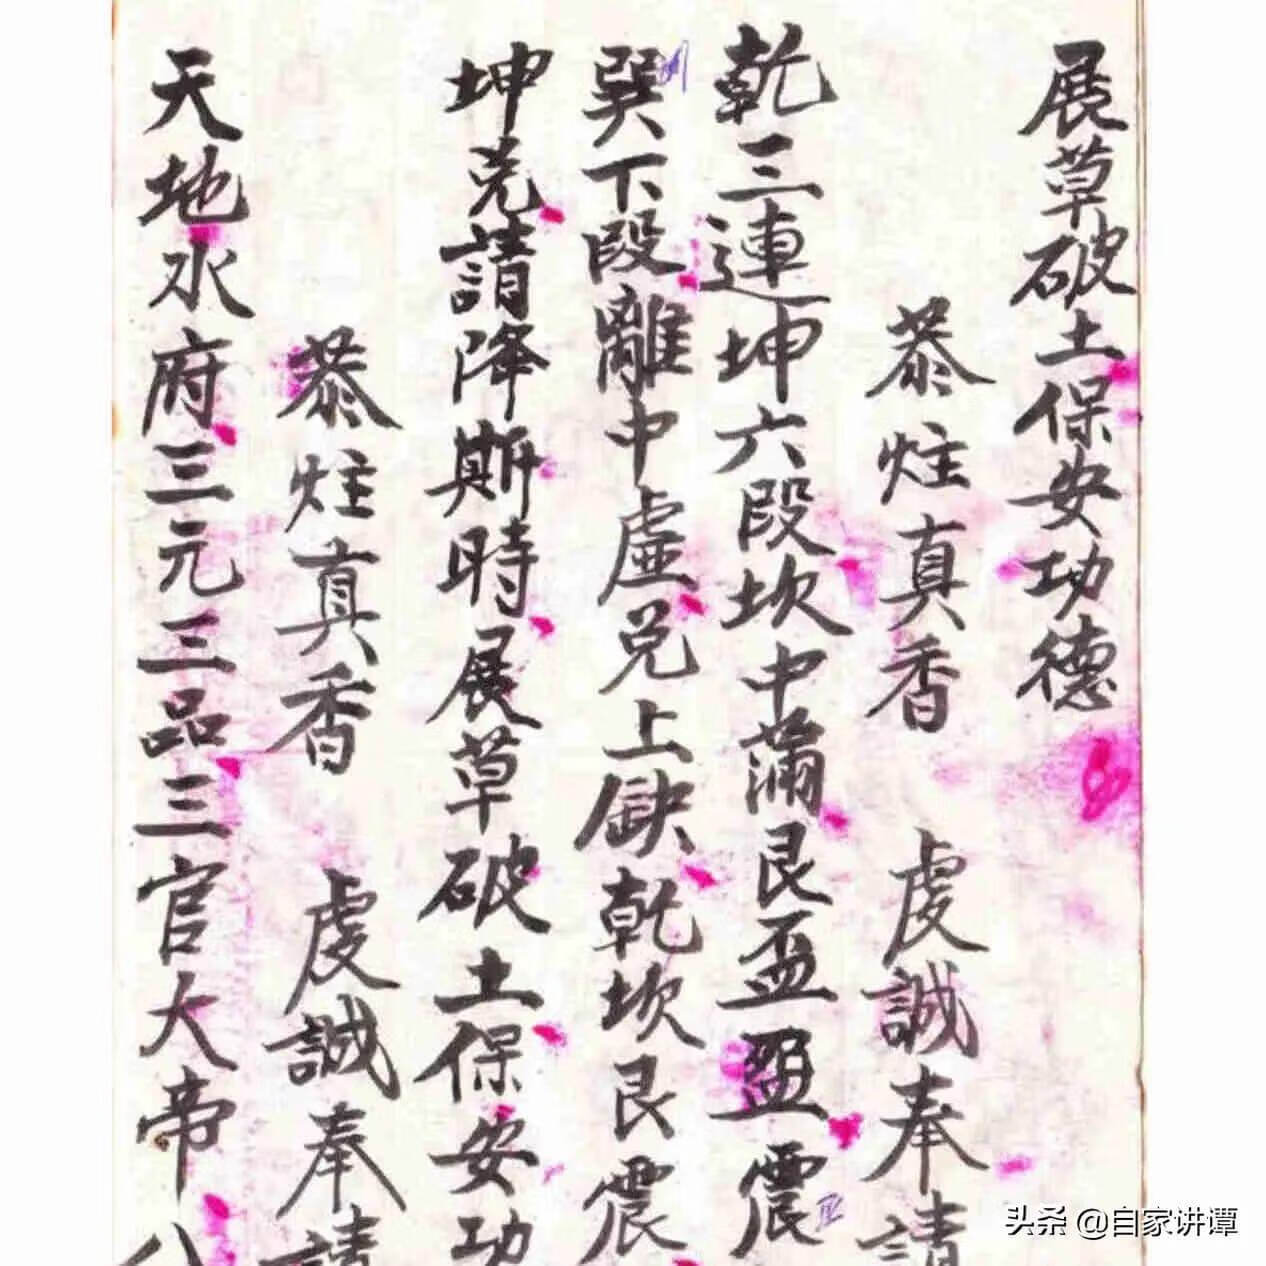 展草破土保安功德
恭炷真香 虔誠奉請
乾三連坤六段坎中滿艮盃震
巽下段離中虛兌上缺乾坎艮震
坤兌請降斯時展草破土保安功
恭炷真香 虔誠奉請
天地水府三元三品三官大帝八
头条 @自家讲谭